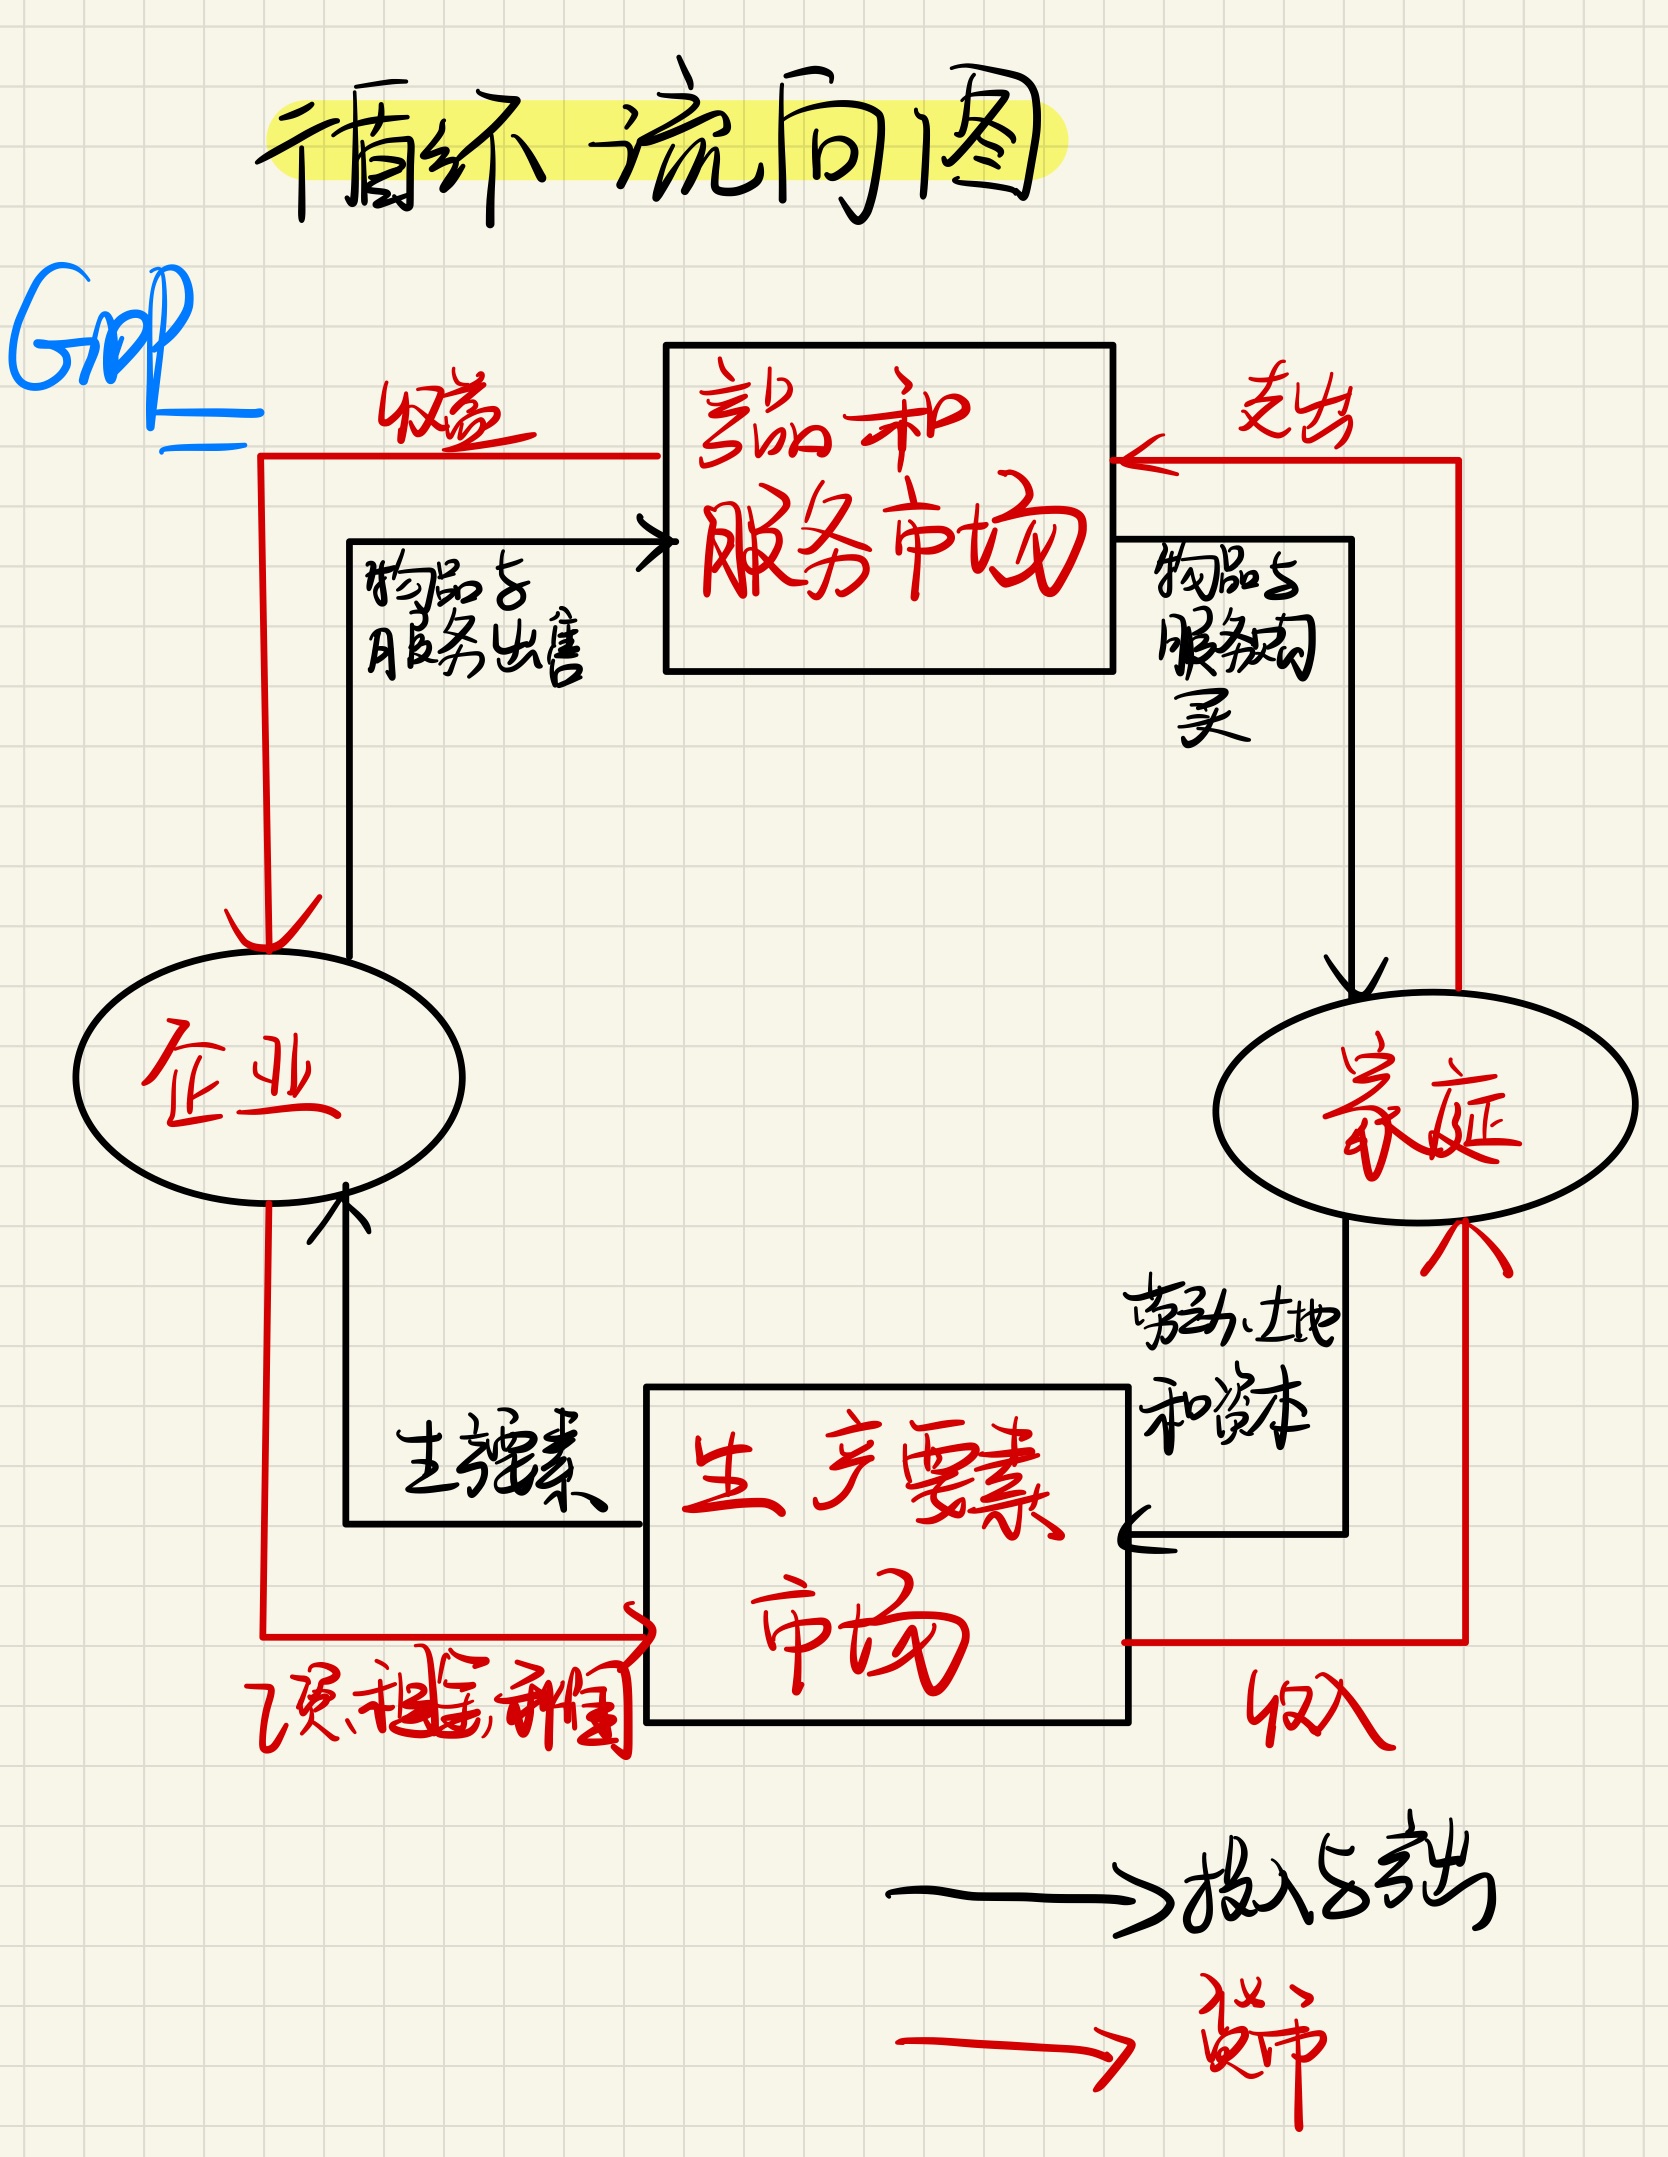 循环流向图
GDP
收益
产品和
服务市场
支出
物品与
服务出售
物品与
服务购
买
企业
家庭
劳动、土地
和资本
生产要素
生产要素
市场
工资、租金、利润
收入
投入与产出
货币